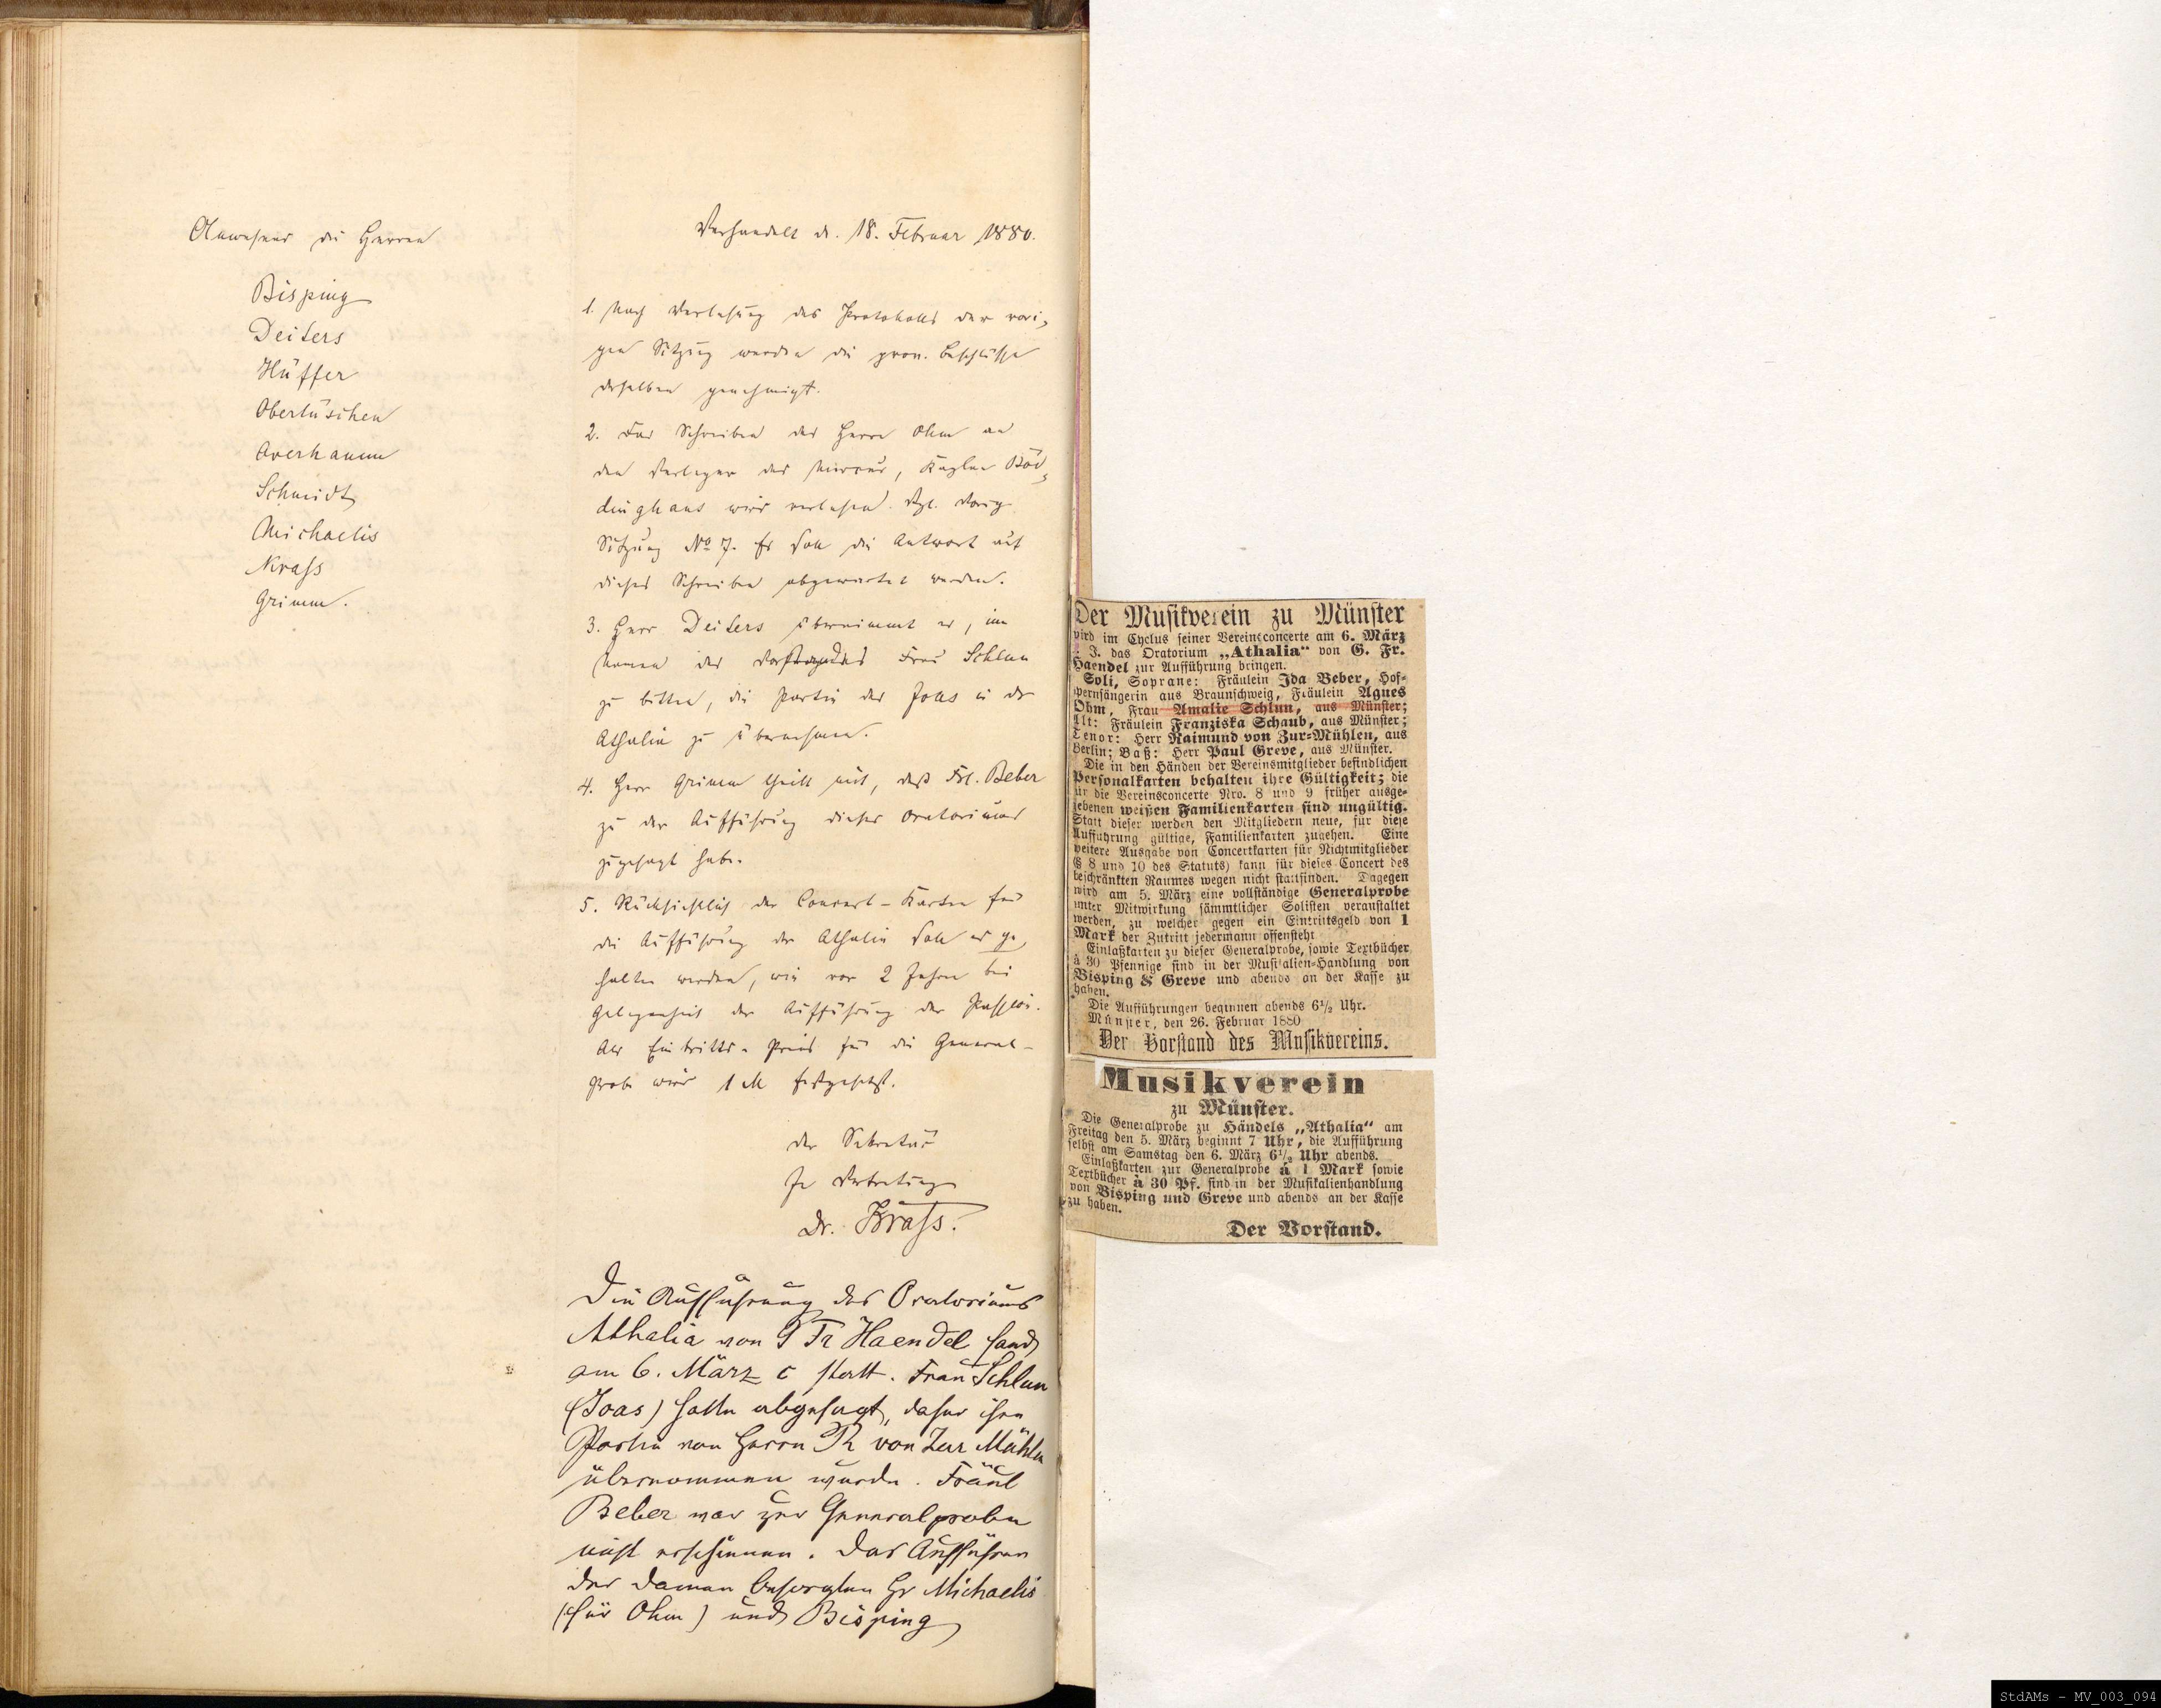 Anwesend die Herren
Bisping
Deiters
Hüffer
Obertüschen
Averhamm
Schmidt
Michaelis
Krass
Grimm.
Verhandelt d. 18. Februar 1880.
1. Nach Verlesung des Protokolls der vori-
gen Sitzung werden die prov. Beschlüsse
derselben genehmigt.
2. Das Schreiben des Herrn Ohm an
den Verleger des Merkur, Kaplan Böd-
dinghaus wird verlesen. Vgl. vorig.
Sitzung No 7. Es soll die Antwort auf
dieses Schreiben abgewartet werden.
3. Herr Deiters übernimmt es, im
Namen des Vorstandes Frau Schlun
zu bitten, die Partie des Joas in der
Athalia zu übernehmen.
4. Herr Grimm theilt mit, daß Frl. Beber
zu der Aufführung dieses Oratoriums
zugesagt habe.
5. Rücksichtlich der Concert-Karten für
die Aufführung der Athalia soll es ge-
halten werden, wie vor 2 Jahren bei
Gelegenheit der Aufführung der Passion.
Als Eintritts-Preis für die General-
Probe wird 1 M festgesetzt.
Der Sekretär
In Vertretung
Dr. Krass.
Die Aufführung des Oratoriums
Athalia von G Fr Haendel fand
am 6. März c statt. Frau Schlun
(Joas) hatte abgesagt, daher ihre
Parthie von Herrn R von Zur Mühlen
übernommen wurde. Fräul
Beber war zur Generalprobe
nicht erschienen. Das Aufführen
der Damen besorgten Hr Michaelis
(für Ohm) und Bisping
Der Musikverein zu Münster
wird im Cyclus seiner Vereinsconcerte am 6. März
J. das Oratorium „Athalia“ von G. Fr.
Haendel zur Aufführung bringen.
Soli, Soprane: Fräulein Ida Beber, Hof-
opernsängerin aus Braunschweig, Fräulein Agnes
Ohm, Frau Amalie Schlun, aus Münster;
Alt: Fräulein Franziska Schaub, aus Münster;
Tenor: Herr Raimund von Zur-Mühlen, aus
Berlin; Baß: Herr Paul Greve, aus Münster.
Die in den Händen der Vereinsmitglieder befindlichen
Personalkarten behalten ihre Gültigkeit; die
für die Vereinsconcerte Nro. 8 und 9 früher ausge-
gebenen weißen Familienkarten sind ungültig.
Statt dieser werden den Mitgliedern neue, für diese
Aufführung gültige, Familienkarten zugehen. Eine
weitere Ausgabe von Concertkarten für Nichtmitglieder
(§ 8 und 10 des Statuts) kann für dieses Concert des
beschränkten Raumes wegen nicht stattfinden. Dagegen
wird am 5. März eine vollständige Generalprobe
unter Mitwirkung sämmtlicher Solisten veranstaltet
werden, zu welcher gegen ein Eintrittsgeld von 1
Mark der Zutritt jedermann offensteht
Einlaßkarten zu dieser Generalprobe, sowie Textbücher
à 30 Pfennige sind in der Musikalien-Handlung von
Bisping & Greve und abends an der Kasse zu
haben.
Die Aufführungen beginnen abends 6½ Uhr.
Münster, den 26. Februar 1880
Der Vorstand des Musikvereins.
Musikverein
zu Münster.
Die Generalprobe zu Händels „Athalia“ am
Freitag den 5. März beginnt 7 Uhr, die Aufführung
selbst am Samstag den 6. März 6½ Uhr abends.
Einlaßkarten zur Generalprobe à 1 Mark sowie
Textbücher à 30 Pf. sind in der Musikalienhandlung
von Bisping und Greve und abends an der Kasse
zu haben.
Der Vorstand.
StdAMs - MV_003_094